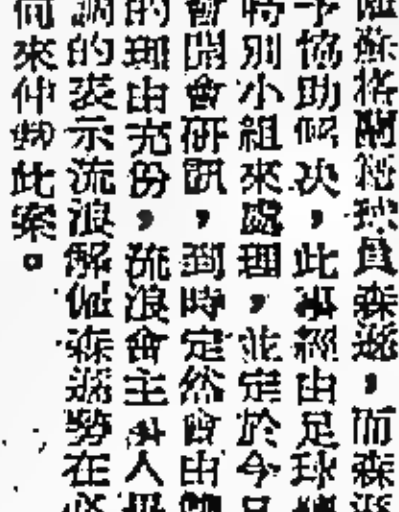 蘇格蘭籍球員森遜，而森
予協助解决，此事經由足球總
時別小組來處理，並定於今
會開會研訊，到時定然會由
的理由充份，流浪會主持人
調的表示流浪解僱森遜勢在必
何來仲裁此案。